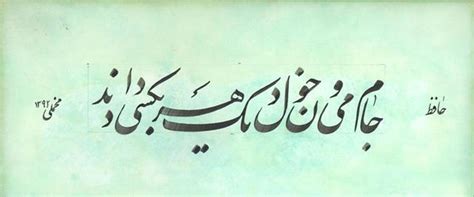 حافظ
جام می و خون دل هر یک بکسی دادند
۱۳۹۲